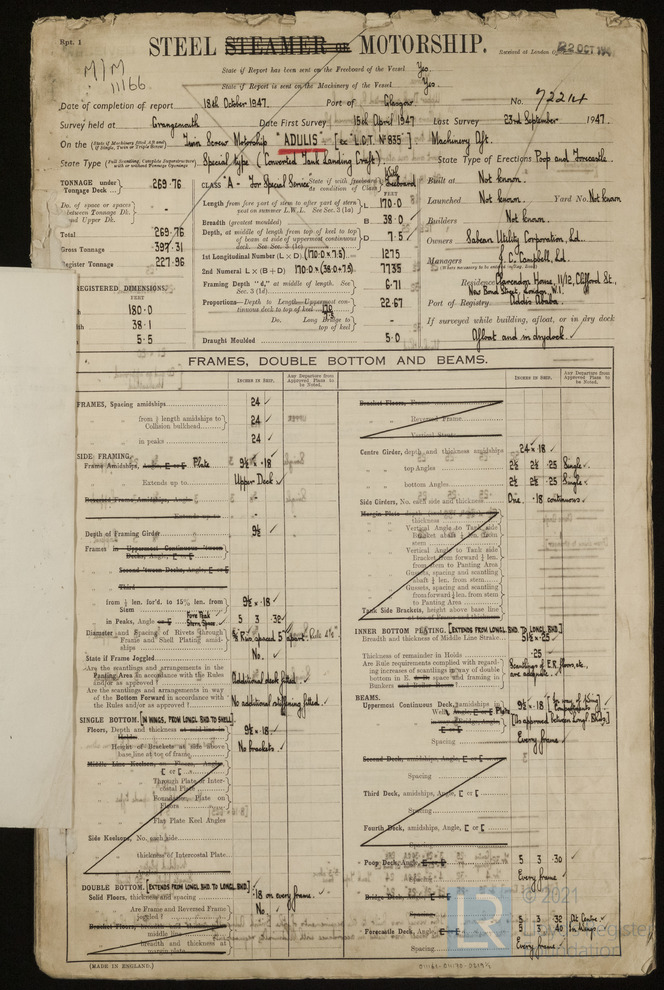 Rpt. 1
STEEL STEAMER or MOTORSHIP.
Received at London 22 OCT 194
M/M
11166.
State if Report has been sent on the Freeboard of the Vessel Yes.
State if Report is sent on the Machinery of the Vessel Yes.
Date of completion of report 18th October 1947. Port of Glasgow No. 72214
Survey held at Grangemouth Date First Survey 15th April 1947 Last Survey 23rd September 1947.
On the Twin Screw Motorship "ADULIS" [ex "L.C.T. No 835"] Machinery Aft.
State Type Special type (Converted Tank Landing Craft). State Type of Erections Poop and Forecastle.
TONNAGE under Tonnage Deck 269.76
CLASS "A - For Special Service" State if with freeboard as condition of Class With Freeboard
Built at Not known.
Do. of space or spaces between Tonnage Dk. and Upper Dk. -
Length from fore part of stem to after part of stern post on summer L.W.L. See Sec. 3 (1a) L 170.0
Launched Not known. Yard No. Not known
Breadth (greatest moulded) B 38.0
Builders Not known.
Total 269.76
Depth, at middle of length from top of keel to top of beam at side of uppermost continuous deck. See Sec. 3 (1c) D 7.5
Owners Sabean Utility Corporation, Ld.
Gross Tonnage 397.31
1st Longitudinal Number (L × D) (170.0 × 7.5) 1275
Managers J. C. Campbell, Ld.
Register Tonnage 227.96
2nd Numeral L × (B + D) 170.0 × (38.0 + 7.5) 7735
Residence Clarendon House, 11/12, Clifford St., New Bond Street, London, W.1.
REGISTERED DIMENSIONS.
FEET
180.0
38.1
5.5
Framing Depth "d," at middle of length. See Sec. 3 (1d) 6.71
Port of Registry Addis Ababa.
Proportions—Depth to Length—Uppermost continuous deck to top of keel 22.67
If surveyed while building, afloat, or in dry dock
Do. Long Bridge to top of keel -
Afloat and in drydock.
Draught Moulded 5.0
FRAMES, DOUBLE BOTTOM AND BEAMS.
INCHES IN SHIP. Any Departure from Approved Plans to be Noted.
INCHES IN SHIP. Any Departure from Approved Plans to be Noted.
FRAMES, Spacing amidships 24
from length amidships to Collision bulkhead 24
in peaks 24
SIDE FRAMING.
Frame Amidships, Plate 9½ × .18
Extends up to Upper Deck
Reversed Frame Amidships, Angle
Extends up to
Depth of Framing Girder 9½
Frames in Uppermost Continuous 'tween Decks, Angle, [ or [
Second 'tween Decks, Angle, [ or [
Third
from ¼ len. for'd. to 15% len. from Stem 9½ × .18
in Peaks, Angle or [ Fore Peak Stern Space 5 3 .30
Diameter and Spacing of Rivets through Frame and Shell Plating amidships
State if Frame Joggled No.
Are the scantlings and arrangements in the Panting Area in accordance with the Rules and/or as approved? Additional deck fitted.
Are the scantlings and arrangements in way of the Bottom Forward in accordance with the Rules and/or as approved? No additional stiffening fitted.
SINGLE BOTTOM. [IN WINGS, FROM LONGL BHD TO SHELL]
Floors, Depth and thickness 9½ × .18
Height of Brackets at side above base line at toe of frame No brackets.
Middle Line Keelson, on Floors, Angle, [ or [
Through Plate or Intercostal Plate
Foundation Plate on Floors
Flat Plate Keel Angles
Side Keelsons, No. each side
thickness of Intercostal Plate
DOUBLE BOTTOM. [EXTENDS FROM LONGL BHD. TO LONGL BHD.]
Solid Floors, thickness and spacing .18 on every frame.
Are Frame and Reversed Frame joggled? No
Bracket Floors, breadth and thickness at middle line
breadth and thickness at margin plate
(MADE IN ENGLAND.)
Bracket Floors, Frame
Reversed Frame
Vertical Struts
Centre Girder, depth and thickness amidships 24 × 18
top Angles 2½ 2½ .25 Single
bottom Angles 2½ 2½ .25 Single
Side Girders, No. each side and thickness One. .18 continuous
Margin Plate depth and thickness
Vertical Angle to Tank side Bracket abaft ¼ len. from stem
Vertical Angle to Tank side Bracket from forward ¼ len. from stem to Panting Area
Gussets, spacing and scantling abaft ¼ len. from stem
Gussets, spacing and scantling forward ¼ len. from stem to Panting Area
Tank Side Brackets, height above base line
INNER BOTTOM PLATING. [EXTENDS FROM LONGL BHD. TO LONGL BHD.]
Breadth and thickness of Middle Line Strake 51½ × .25
Thickness of remainder in Holds .25
Are Rule requirements complied with regarding increases of scantlings in way of double bottom in E. space and framing in Bunkers Scantlings of E.R. floors, etc. are adequate.
BEAMS.
Uppermost Continuous Deck, amidships Plate 9½ × .18
[As approved between Longl Bhds.]
Spacing Every frame
Second Deck, amidships, Angle, [ or [
Spacing
Third Deck, amidships, Angle, [ or [
Spacing
Fourth Deck, amidships, Angle, [ or [
Spacing
Poop Deck, Angle, [ or [ 5 3 .30
Spacing Every frame
Bridge Deck, Angle, [ or [
Spacing
Forecastle Deck, Angle, [ or [ 5 3 .32 At Centre
5 3 .40 In Wings
Spacing Every frame
LR
© 2021
Lloyd's Register Foundation